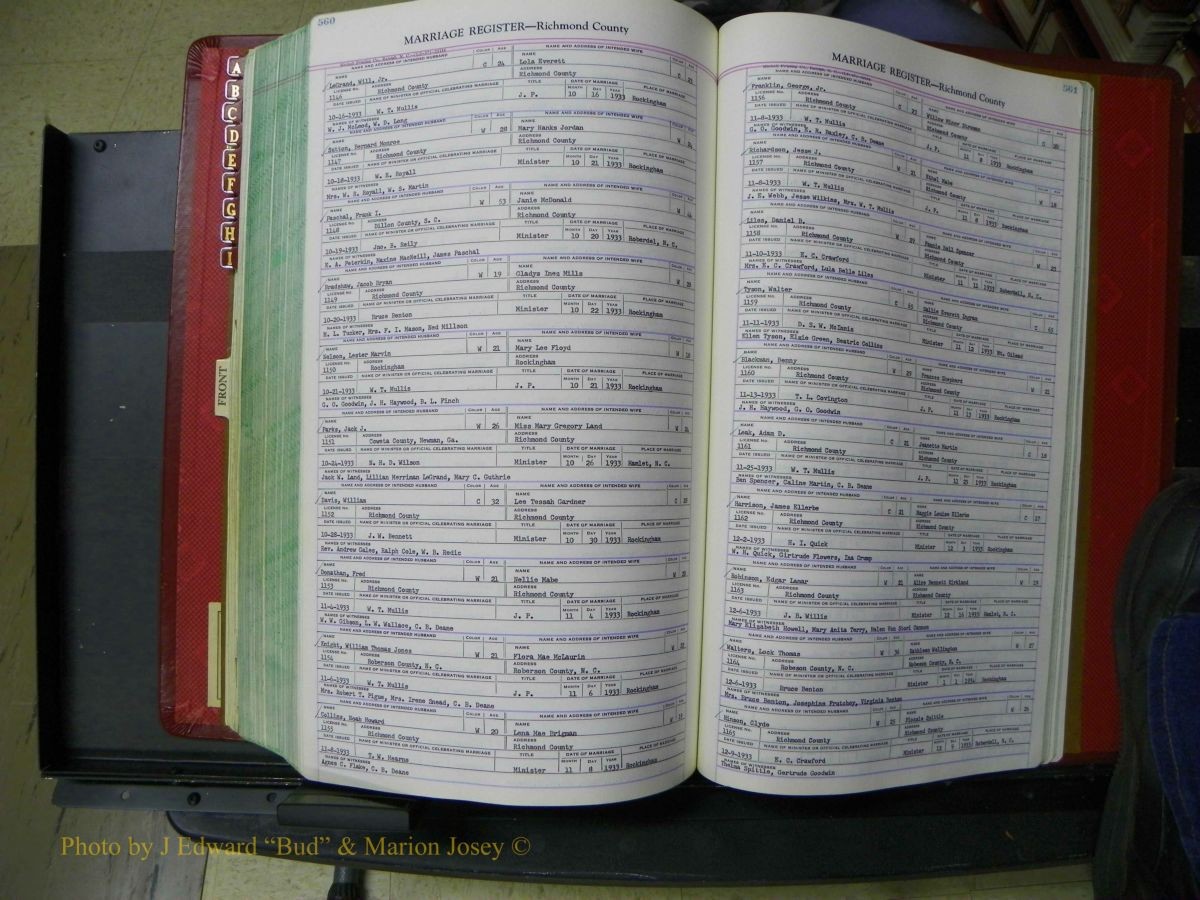 560
MARRIAGE REGISTER—Richmond County
NAME AND ADDRESS OF INTENDED HUSBAND COLOR AGE NAME AND ADDRESS OF INTENDED WIFE
LeGrand, Will, Jr. C 24 Lola Everett C 23
1146 Richmond County Richmond County
10-16-1933 W. T. Mullis J. P. 10 16 1933 Rockingham
W. J. McLeod, W. D. Long
Sutton, Bernard Monroe W 28 Mary Hanks Jordan W 24
1147 Richmond County Richmond County
10-18-1933 W. R. Royall Minister 10 21 1933 Rockingham
Mrs. W. R. Royall, W. S. Martin
Paschal, Frank I. W 53 Janie McDonald W 44
1148 Dillon County, S. C. Richmond County
10-19-1933 Jno. R. Reily Minister 10 20 1933 Roberdel, N. C.
K. A. Peterkin, Maxine MacNeill, James Paschal
Bradshaw, Jacob Bryan W 19 Gladys Inez Mills W
1149 Richmond County Richmond County
10-20-1933 Bruce Benton Minister 10 22 1933 Rockingham
H. L. Tucker, Mrs. F. I. Mason, Ned Millson
Nelson, Lester Marvin W 21 Mary Lee Floyd W 18
1150 Rockingham Rockingham
10-21-1933 W. T. Mullis J. P. 10 21 1933 Rockingham
G. O. Goodwin, J. H. Haywood, B. L. Finch
Parks, Jack J. W 26 Miss Mary Gregory Land W 24
1151 Coweta County, Newnan, Ga. Richmond County
10-24-1933 N. H. D. Wilson Minister 10 26 1933 Hamlet, N. C.
Jack W. Land, Lillian Merriman LeGrand, Mary C. Guthrie
Davis, William C 32 Lee Tessah Gardner C
1152 Richmond County Richmond County
10-28-1933 J. W. Bennett Minister 10 30 1933 Rockingham
Rev. Andrew Gales, Ralph Cole, W. B. Redic
Donathan, Fred W 21 Nellie Mabe W
1153 Richmond County Richmond County
11-4-1933 W. T. Mullis J. P. 11 4 1933 Rockingham
W. W. Gibson, L. W. Wallace, C. B. Deane
Knight, William Thomas Jones W 21 Flora Mae McLaurin W
1154 Roberson County, N. C. Roberson County, N. C.
11-6-1933 W. T. Mullis J. P. 11 6 1933 Rockingham
Mrs. Robert T. Pigue, Mrs. Irene Snead, C. B. Deane
Collins, Noah Howard W 20 Lena Mae Brigman W
1155 Richmond County Richmond County
11-8-1933 T. W. Hearns Minister 11 8 1933 Rockingham
Agnes C. Flake, C. B. Deane
561
MARRIAGE REGISTER—Richmond County
Franklin, George, Jr. C
1156 Richmond County Richmond County
11-8-1933 W. T. Mullis J. P. 11 8 1933 Rockingham
G. O. Goodwin, H. R. Baxley, C. B. Deane
Richardson, Jesse J. W 21 Ethel Mabe W 18
1157 Richmond County Richmond County
11-8-1933 W. T. Mullis J. P. 11 8 1933 Rockingham
J. H. Webb, Jesse Wilkins, Mrs. W. T. Mullis
Liles, Daniel B. W Fannie Bell Spencer W
1158 Richmond County Richmond County
11-10-1933 E. C. Crawford Minister 11 11 1933 Roberdell, N. C.
Mrs. E. C. Crawford, Lula Belle Liles
Tyson, Walter C 65 Sallie Everett Ingram C
1159 Richmond County Richmond County
11-11-1933 D. S. W. McInnis Minister 11 12 1933 Mt. Gilead
Ellen Tyson, Elzie Green, Beatric Collins
Blackman, Benny W 29 Frances Shephard W
1160 Richmond County Richmond County
11-13-1933 T. L. Covington J. P. 11 13 1933 Rockingham
J. H. Haywood, G. O. Goodwin
Leak, Adam D. C 21 Jeanette Martin C 18
1161 Richmond County Richmond County
11-25-1933 W. T. Mullis J. P. 11 25 1933 Rockingham
Ben Spencer, Caline Martin, C. B. Deane
Harrison, James Ellerbe C 21 Maggie Louise Ellerbe C
1162 Richmond County Richmond County
12-2-1933 H. I. Quick Minister 12 3 1933 Rockingham
W. H. Quick, Girtrude Flowers, Iaa Crump
Robinson, Edgar Lamar W 21 Alice Bennett Kirkland W
1163 Richmond County Richmond County
12-6-1933 J. B. Willis Minister 12 16 1933 Hamlet, N. C.
Mary Elizabeth Howell, Mary Anita Terry, Helen Von Cannon
Walters, Lock Thomas W 36 Kathleen Wallington W 27
1164 Robeson County, N. C. Robeson County, N. C.
12-6-1933 Bruce Benton Minister 1 1 1934 Rockingham
Mrs. Bruce Benton, Josephine Frutchey, Virginia Benton
Hinson, Clyde W Flossie W
1165 Richmond County Richmond County
12-9-1933 E. C. Crawford Minister 12 9 1933 Roberdell, N. C.
Thelma Spittle, Gertrude Goodwin
A
B
C
D
E
F
G
H
I
FRONT
Photo by J Edward “Bud” & Marion Josey ©